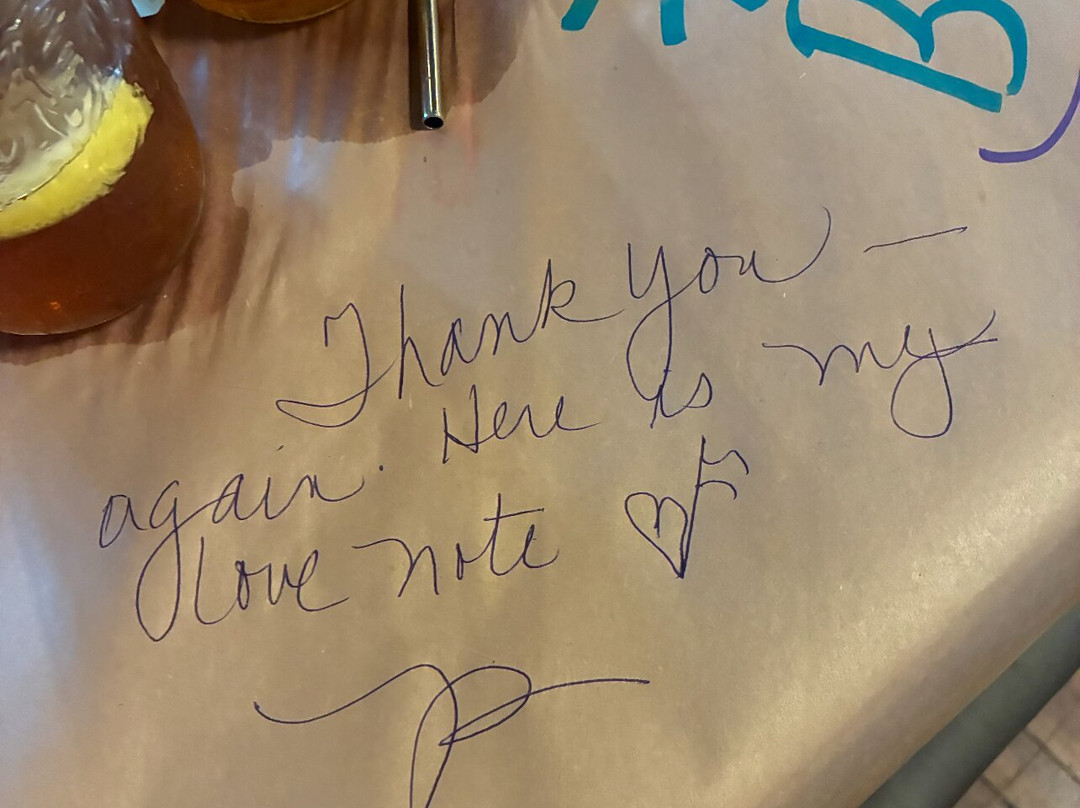 B
Thank you —
again. Here is my
love note
P